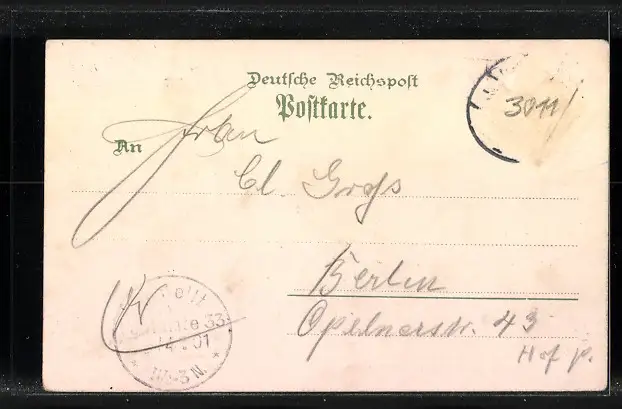 Deutsche Reichspost
Postkarte.
3011
An Frau
Cl. Groß
Berlin
Oppelnerstr. 43
Hof p.
33
1 1/2-3 N.